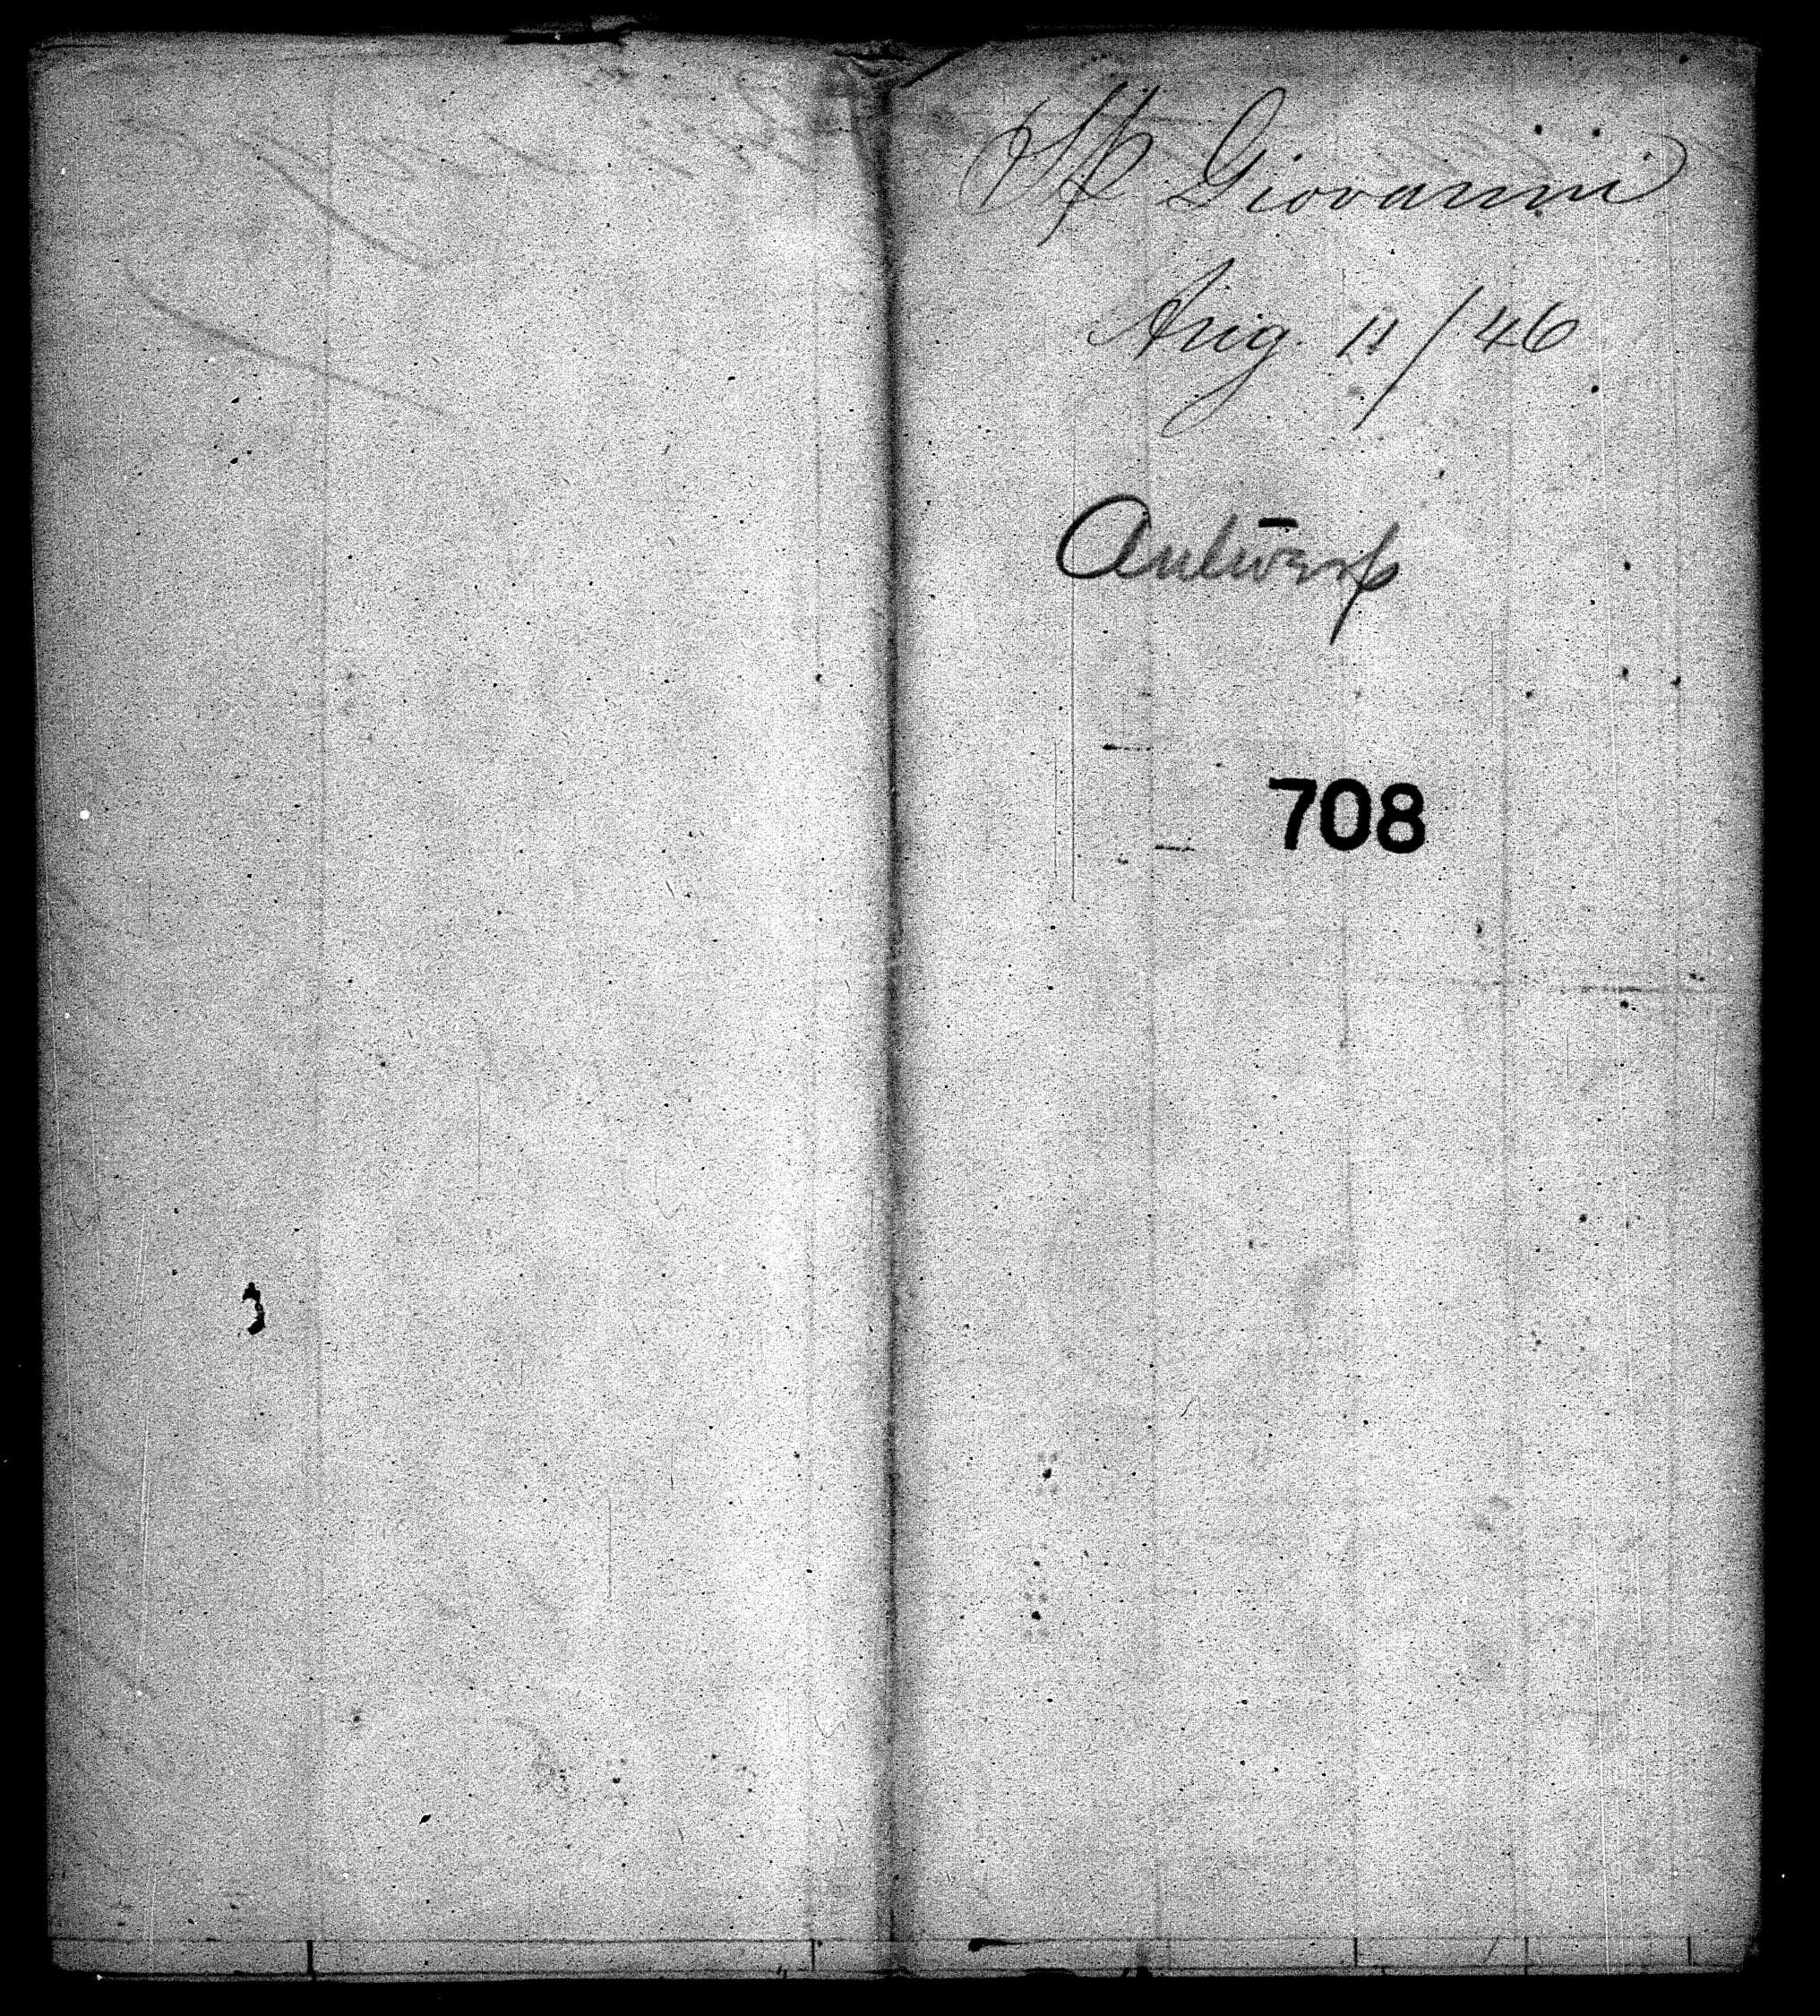 St Giovanni
Aug. 11/46
Antwerp
708